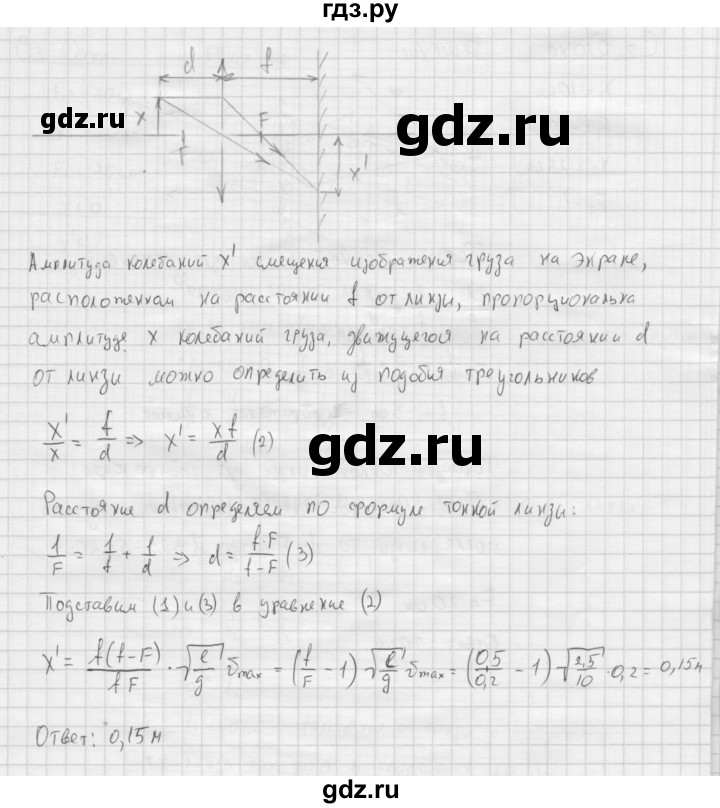 гдз.ру
d f
x F F x'
gdz.ru
gdz.ru
Амплитуда колебаний x' смещения изображения груза на экране,
расположенном на расстоянии f от линзы, пропорциональна
амплитуде x колебаний груза, движущегося на расстоянии d
от линзы можно определить из подобия треугольников
x'/x = f/d => x' = xf/d (2)
gdz.ru
Расстояние d определяем по формуле тонкой линзы:
1/F = 1/f + 1/d => d = f·F/(f-F) (3)
Подставим (1) и (3) в уравнение (2)
x' = f(f-F)/fF · √(ℓ/g) υmax = (f/F - 1) √(ℓ/g) υmax = (0,5/0,2 - 1) √(2,5/10) · 0,2 = 0,15м
Ответ: 0,15м
gdz.ru